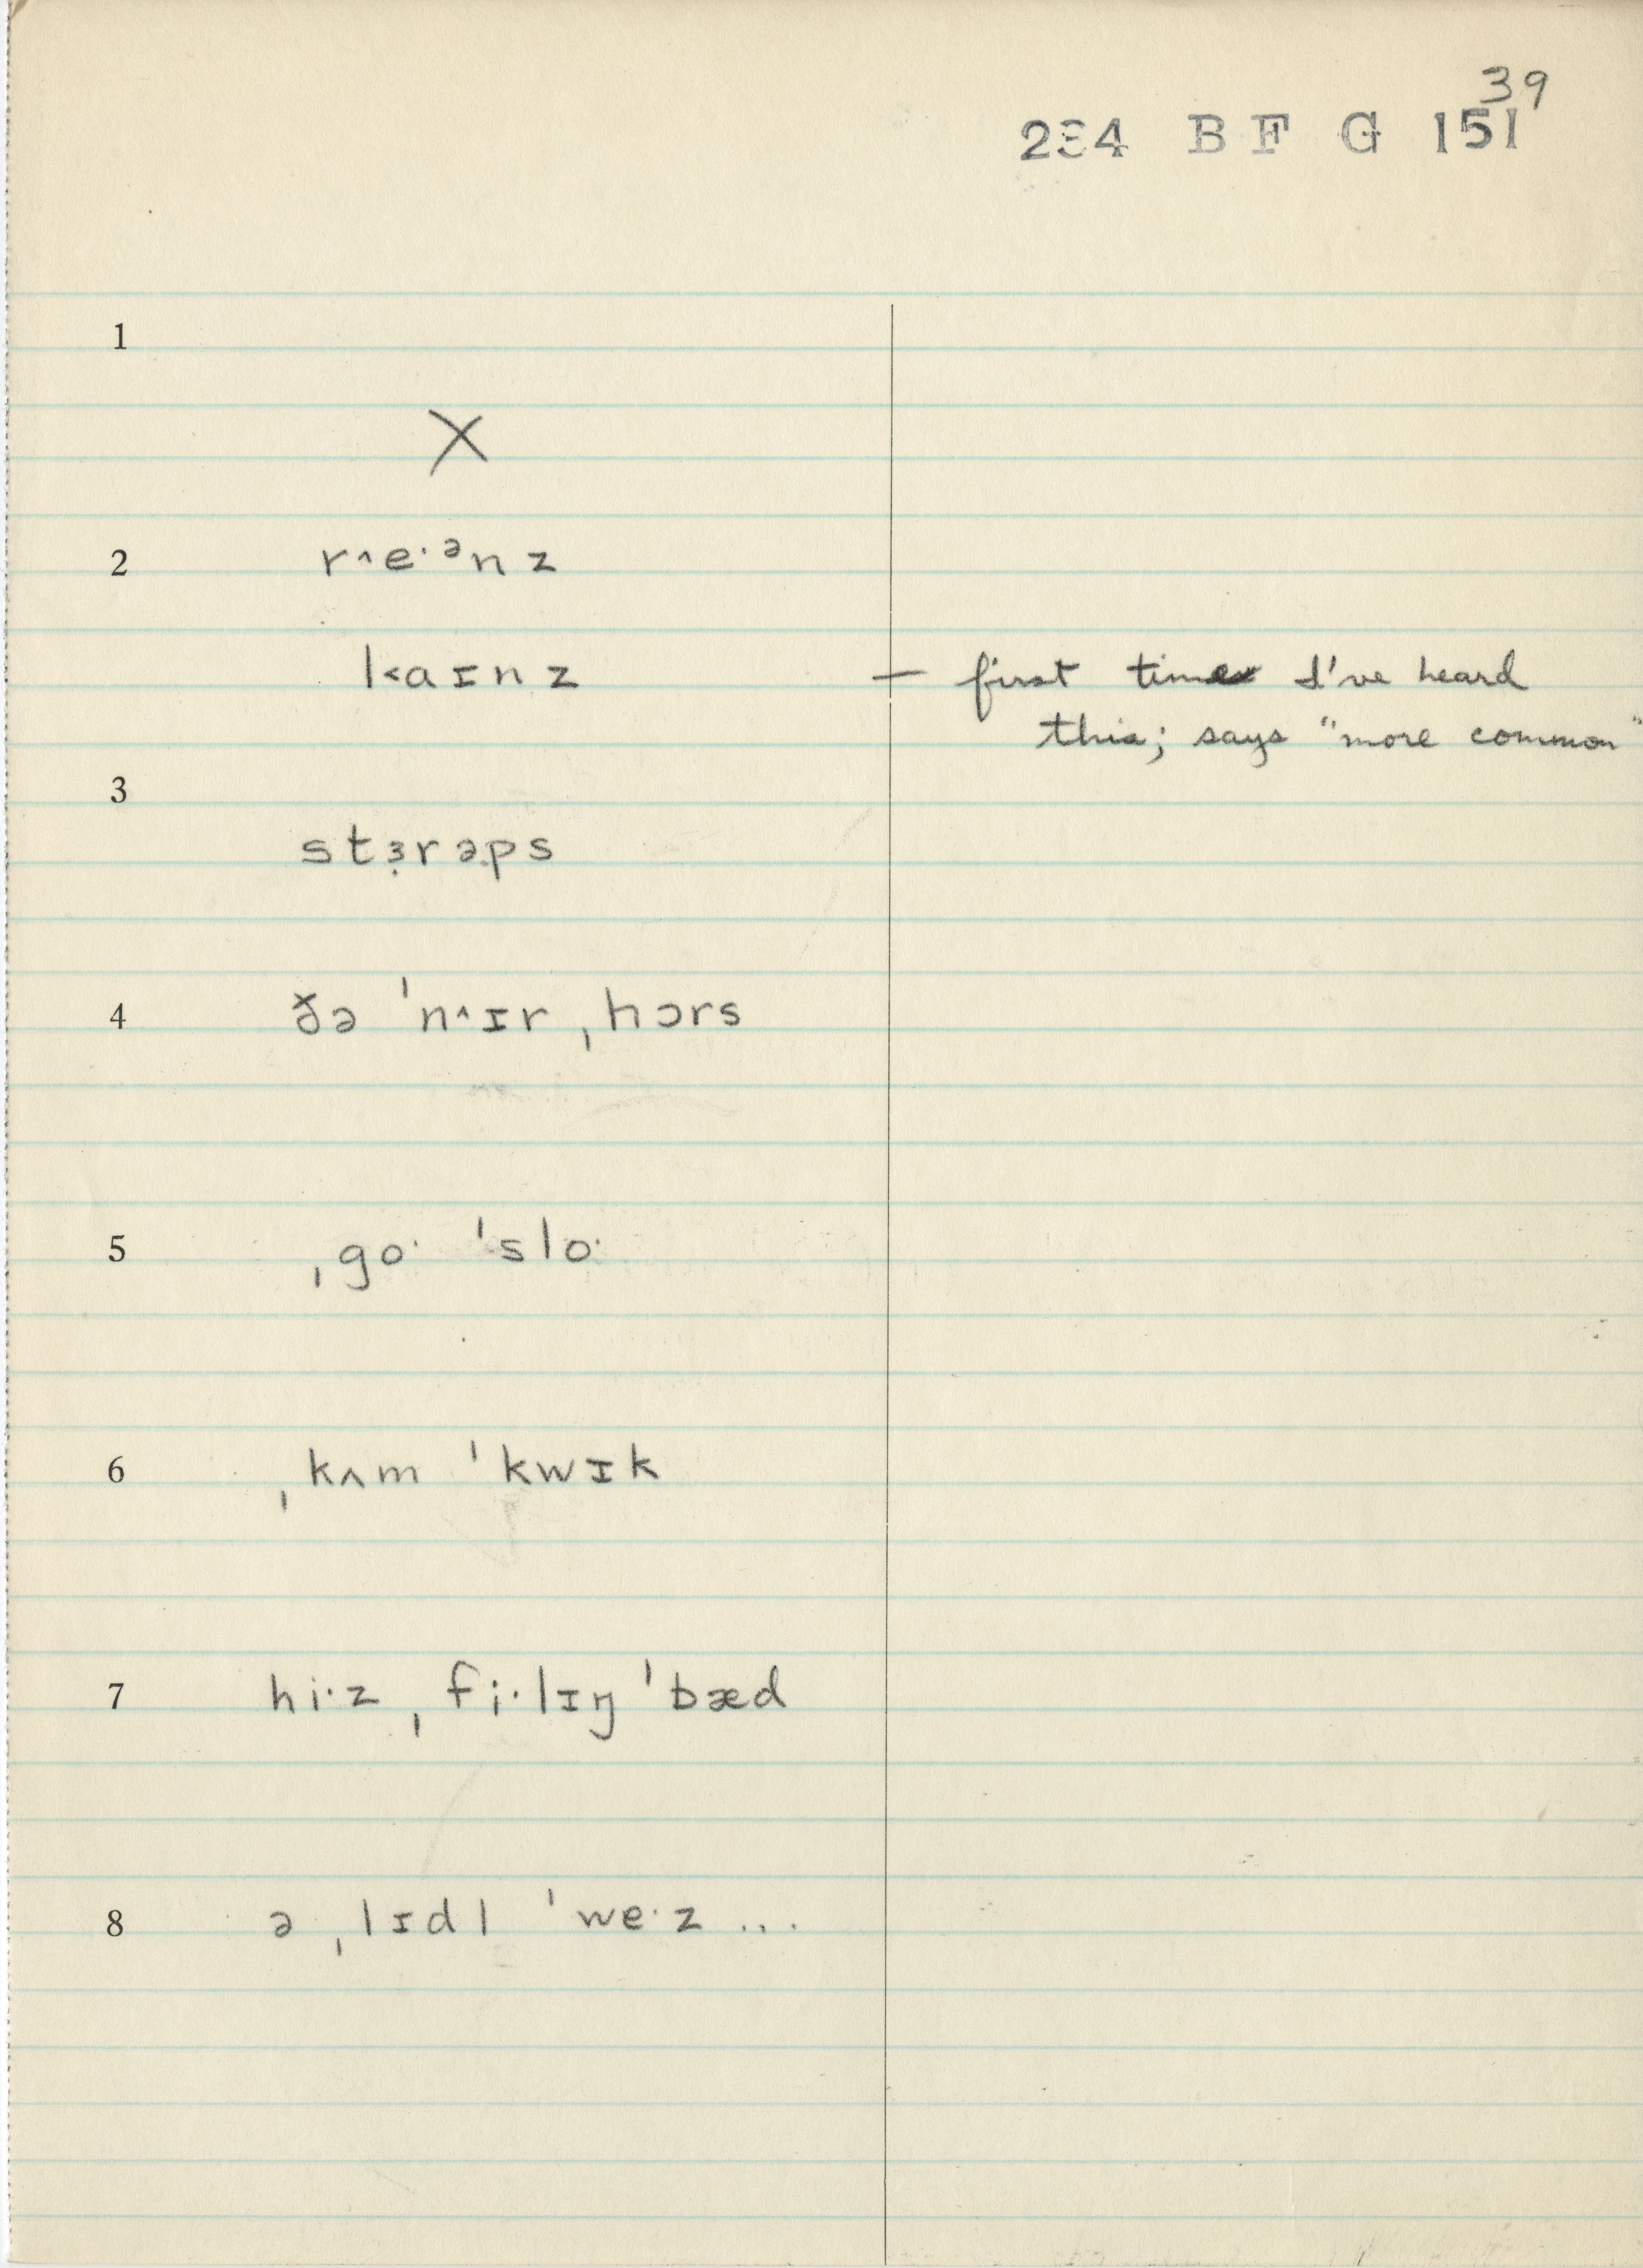 39
234 B F G 151
1
X
2 r˄e·ᵊnz
k˂aɪnz — first time I've heard
this; says "more common"
3
stɜ̣rəps
4 ðə ˈn˄ɪr ˌhɔrs
5 ˌgo· ˈslo·
6 ˌkʌm ˈkwɪk
7 hi·z ˌfi·lɪŋ ˈbæd
8 ə ˌlɪdl ˈwe·z ...